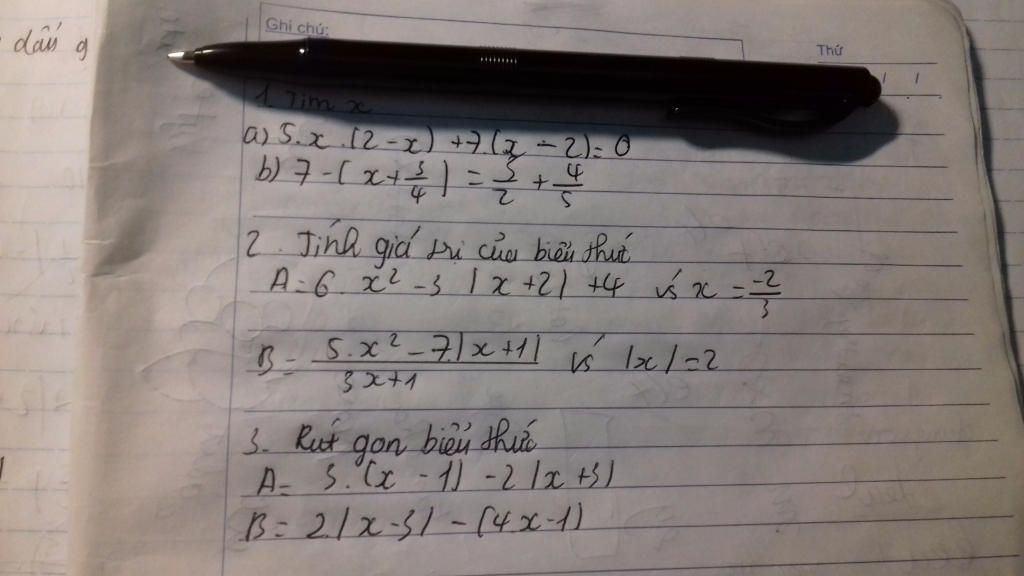 dấu g
Ghi chú:
Thứ
1. Tìm x
a) 5.x.(2-x) +7(x-2)=0
b) 7-(x+3/4) = 3/2 + 4/5
2. Tính giá trị của biểu thức
A=6 x² -3 |x+2| +4 vs x = -2/3
B= 5.x² - 7|x+1| / 3x+1 vs |x|=2
3. Rút gọn biểu thức
A= 3.(x-1) -2|x+3|
B= 2|x-3| - (4x-1)